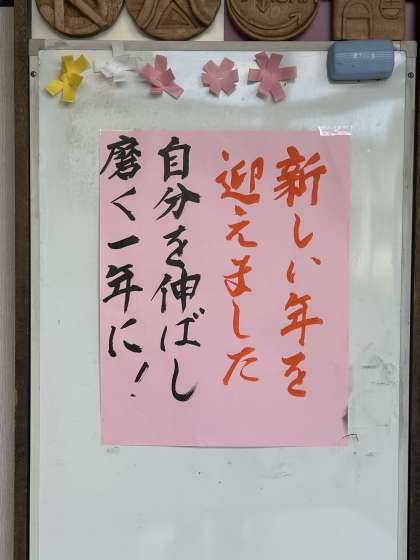 新しい年を
迎えました
自分を伸ばし
磨く一年に！